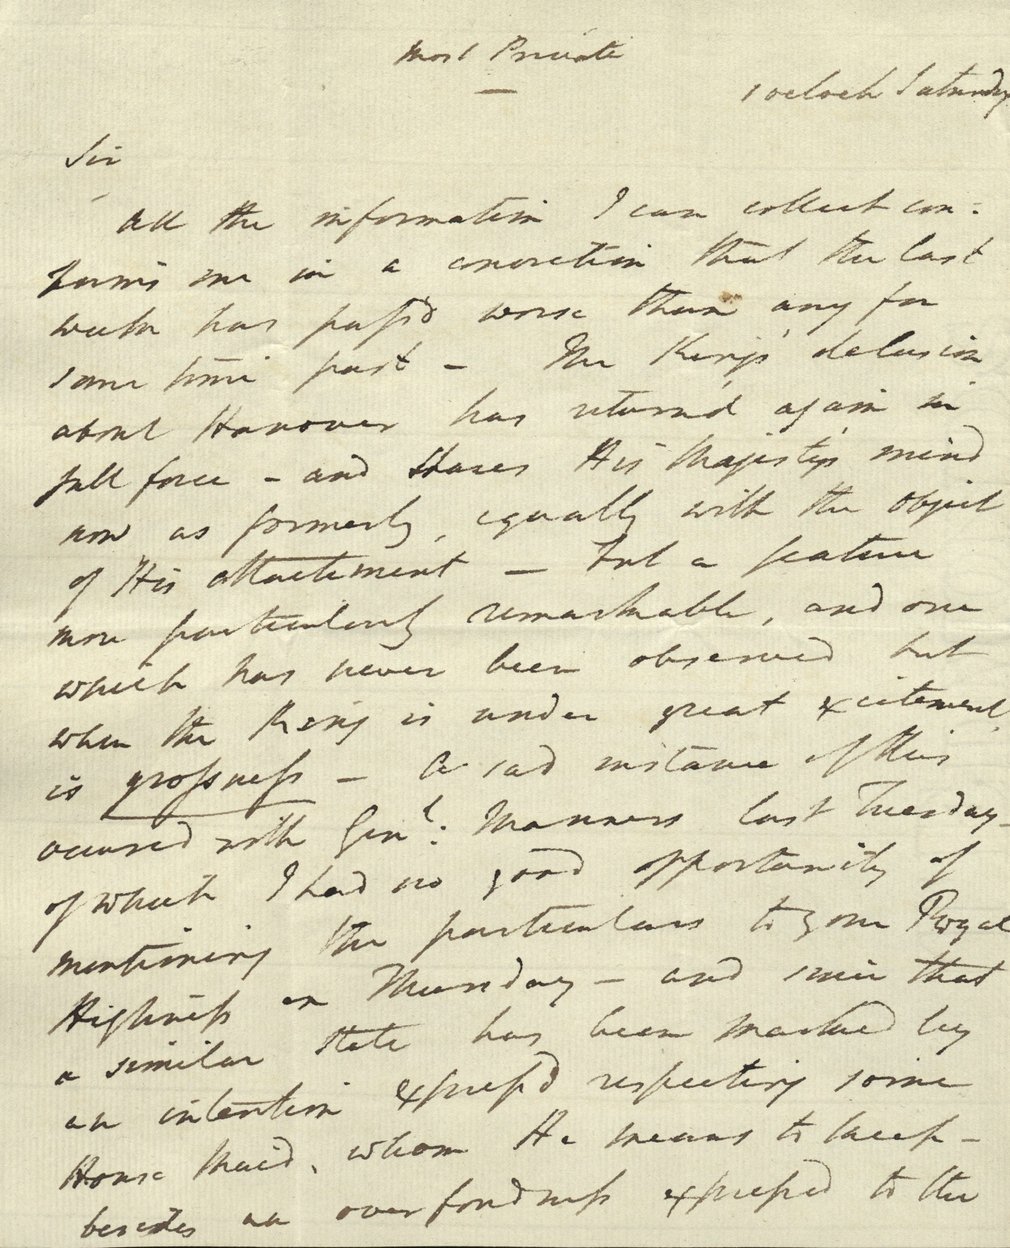 Most Private
1 oclock Saturday
Sir
All the information I can collect con:
firms me in a conviction that the last
week has pass'd worse than any for
some time past - The King's delusion
about Hanover has return'd again in
full force - and shares His Majesty's mind
now as formerly, equally with the object
of His attachment - but a feature
more particularly remarkable, and one
which has never been observed but
when the King is under great excitement,
is grossness - A sad instance of this
occured with Genl: Manners last Tuesday -
of which I had no good opportunity of
mentioning the particulars to your Royal
Highness on Thursday - and since that
a similar state has been marked by
an intention express'd respecting some
House Maid, whom He means to keep -
besides an over fondness expressed to the